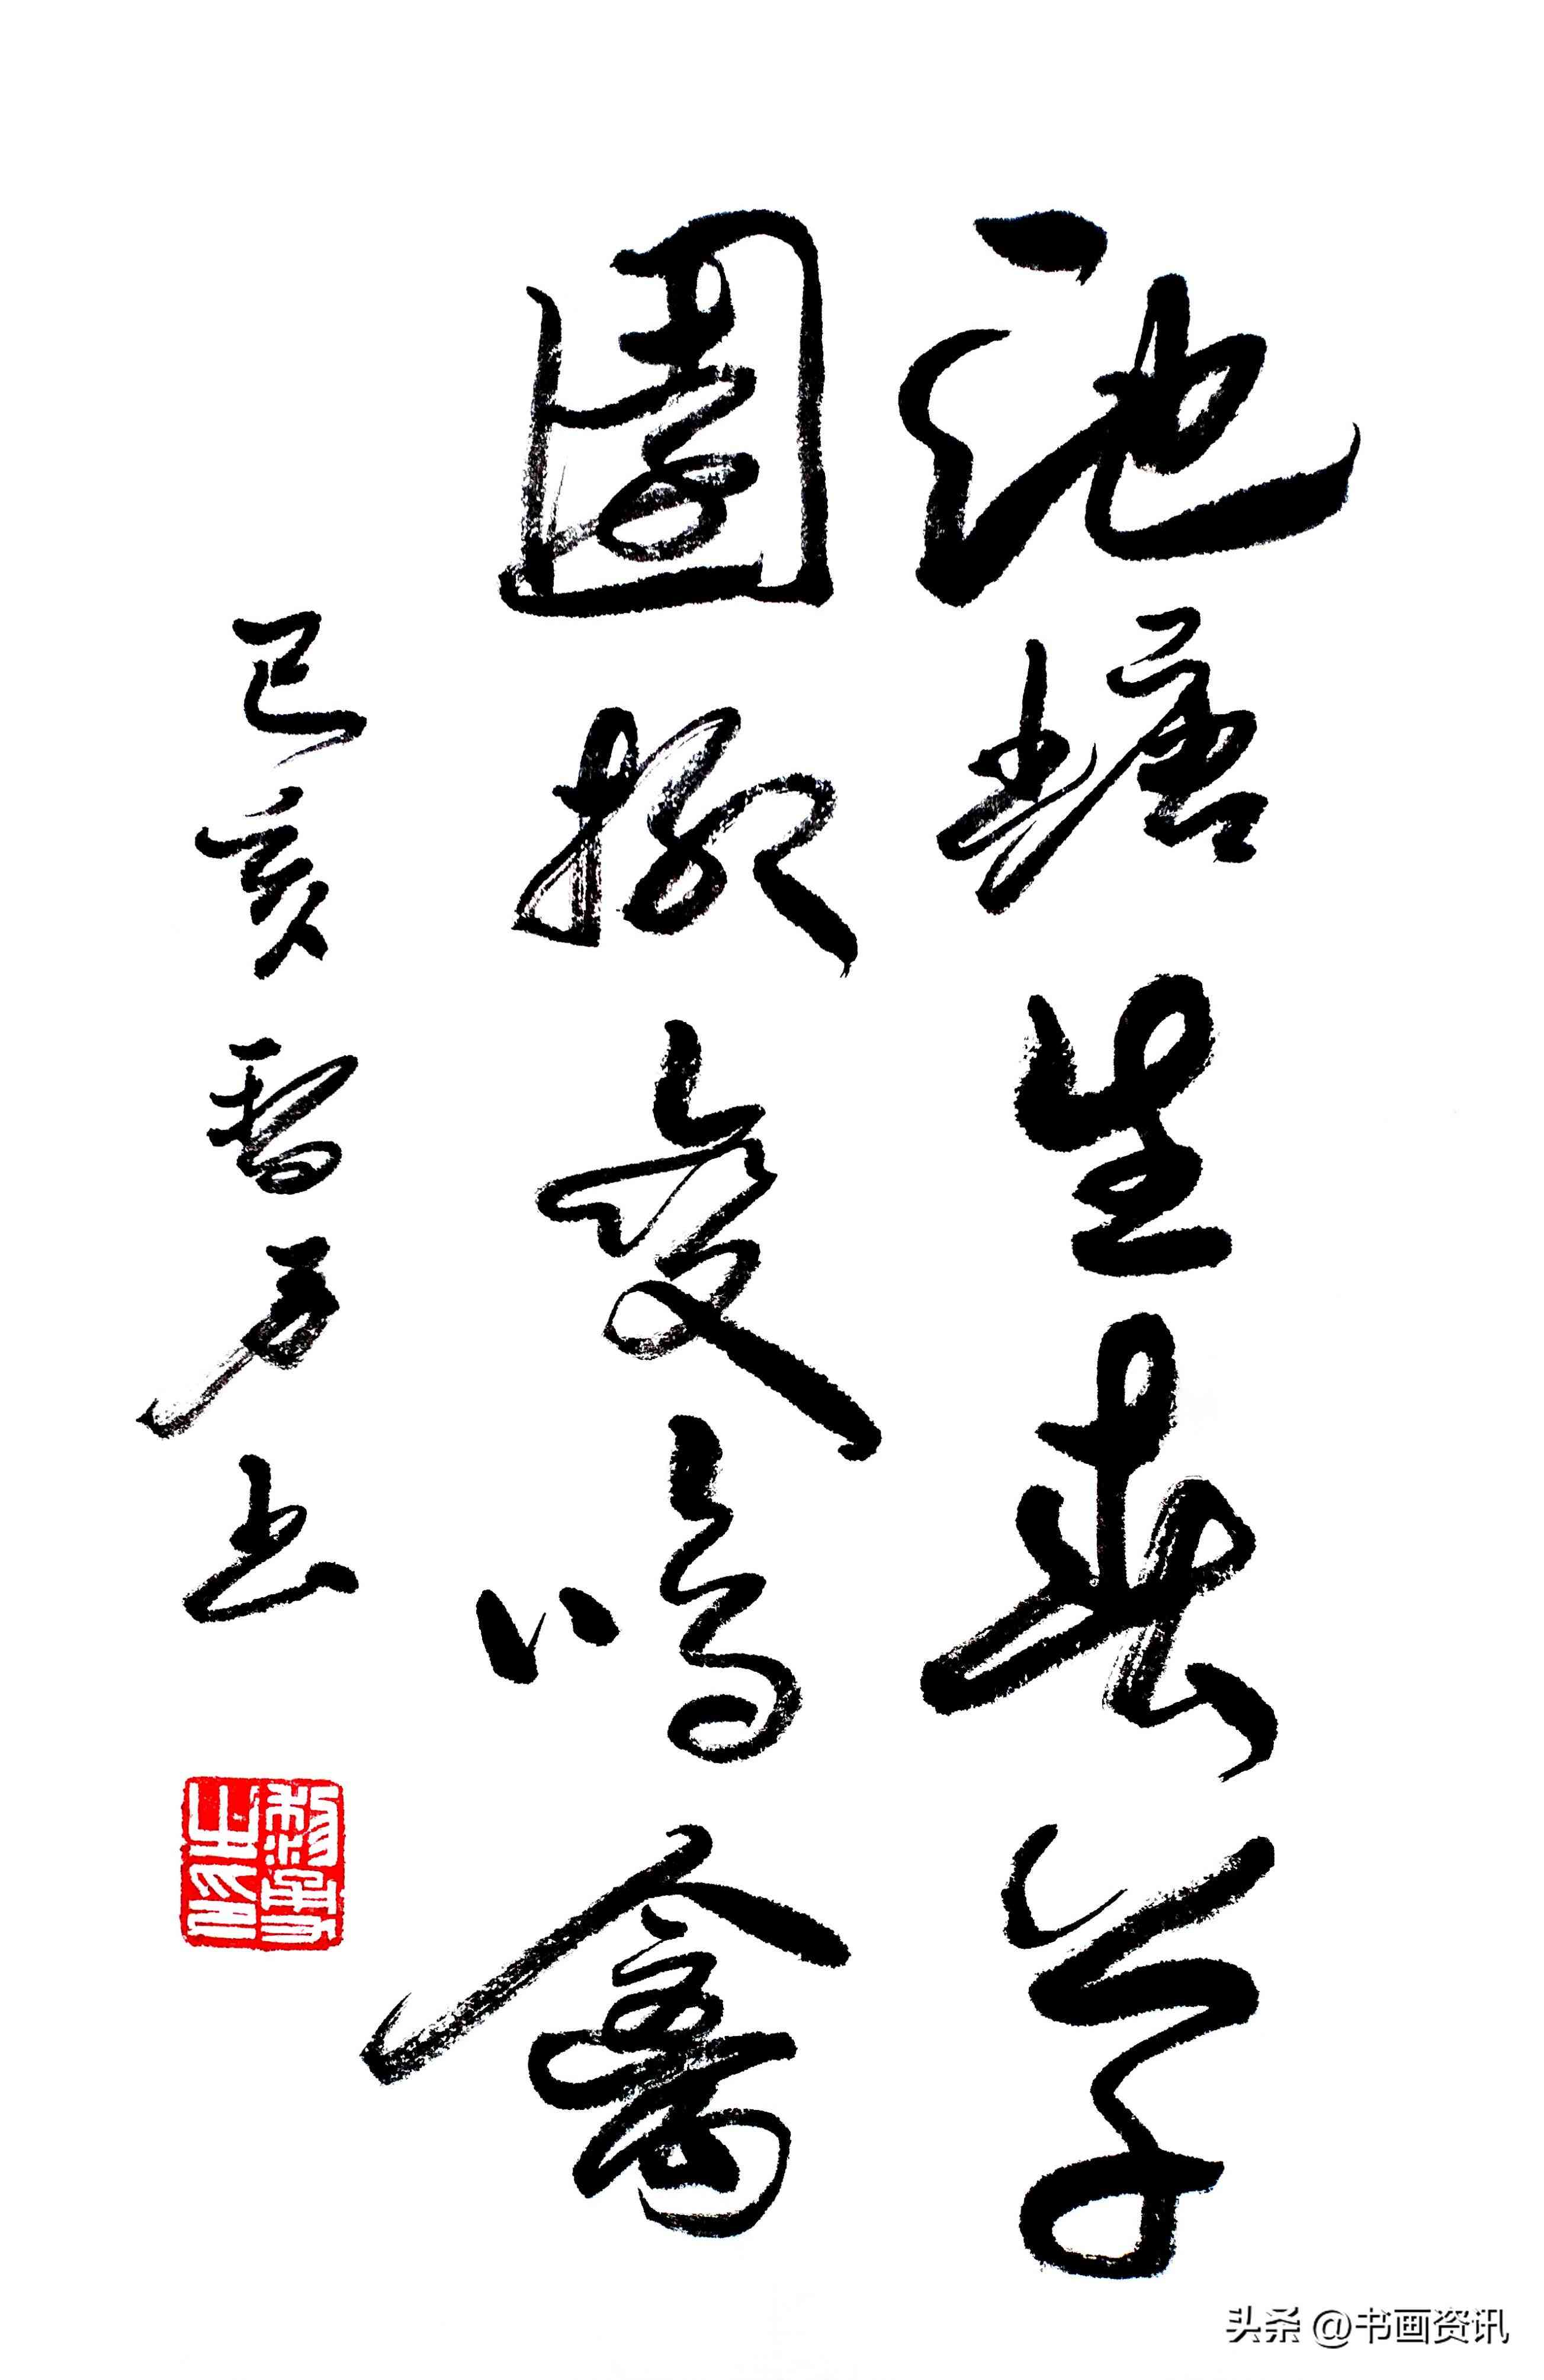 池塘生春草
園柳變鳴禽
己亥书
之印
头条 @书画资讯